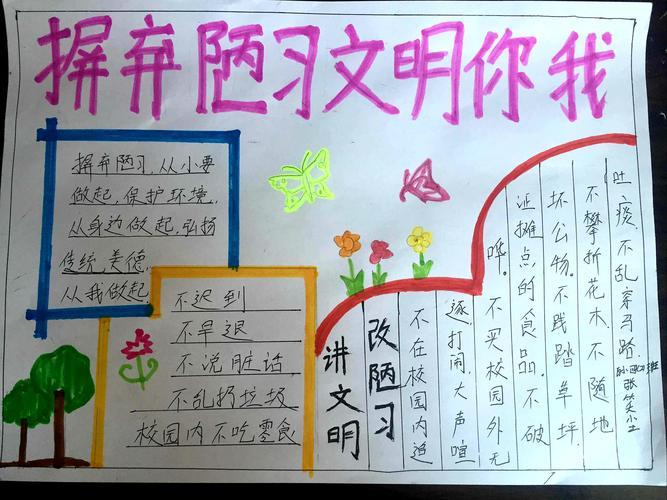 摒弃陋习文明你我
摒弃陋习,从小要
做起,保护环境,
从身边做起,弘扬
传统美德,
从我做起
不迟到
不早退
不说脏话
不乱扔垃圾
校园内不吃零食
讲文明
改陋习
不在校园内追
逐打闹,大声喧
哗。不买校园外无
证摊点的食品。不破
坏公物。不践踏草坪
不攀折花木。不随地
吐痰,不乱穿马路。